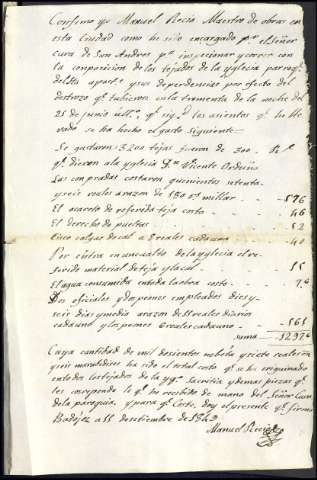 Confieso yo Manuel Recio Maestro de obras en
esta Ciudad como he sido encargado pr. el Señor
Cura de San Andres pa. inspecionar y correr con
la composicion de los tejados de la Yglesia parroql.
del Sto. apostl. y sus dependencias por efecto del
destrozo qe. tubieron en la tormenta de la noche del
21 de junio ullto. qe. sigun los asientos qe. he lle
vado se ha hecho el gasto siguiente
Se gastaron 3200 tejas fueron de 300
qe. dieron ala yglesia Dn. Vicente Orduña
Las compradas costaron quinientos setenta
y seis reales a razon de 180 rs. millar - 576
El acarreto de referida teja costo - 46
El derecho de puertas - 52
Cinco calgas de cal a 8 reales cada una - 40
Por entrar en un corralto de la yglesia el re
ferido material de teja y la cal - 11
El agua consumida en toda la obra costo - 7
Dos oficiales y dos peones empleados diez y
seis dias y medio a razon de 11 reales diarios
cada uno y los peones 6 reales cada uno - 561
suma - 1297
Cuya cantidad de mil doscientos nobeta y siete reales con
y seis maravidises ha sido el total costo qe. se ha originado
en todos los tejados de la ygla. sacristia y demas piezas qe.
les corresponde lo qe. he recibido de mano del Señor Cura
de la paroquia, y para qe. Coste, doy el presente qe. firmo
Badajoz a 11 de setiembre de 1849
Manuel Recio